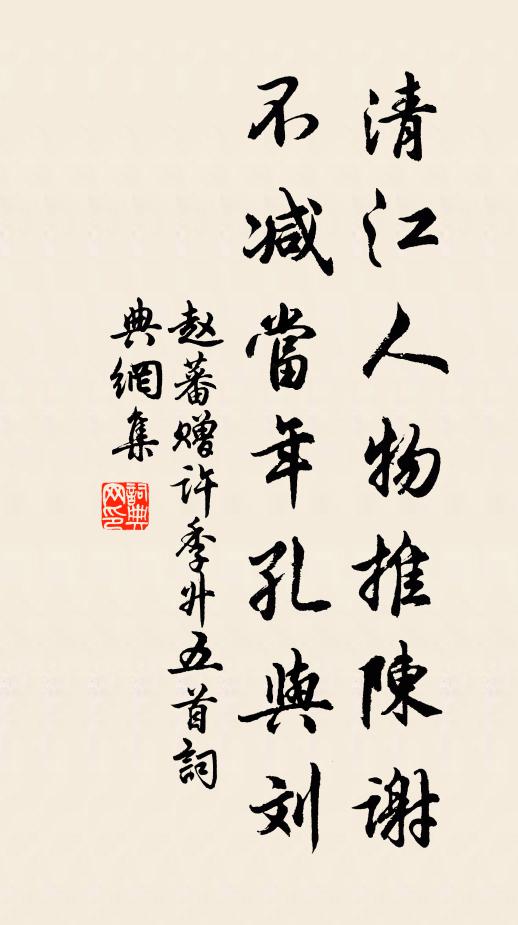 清江人物推陳謝
不减當年孔與刘
赵蕃贈许季升五首詞
典網集
詞典
网印